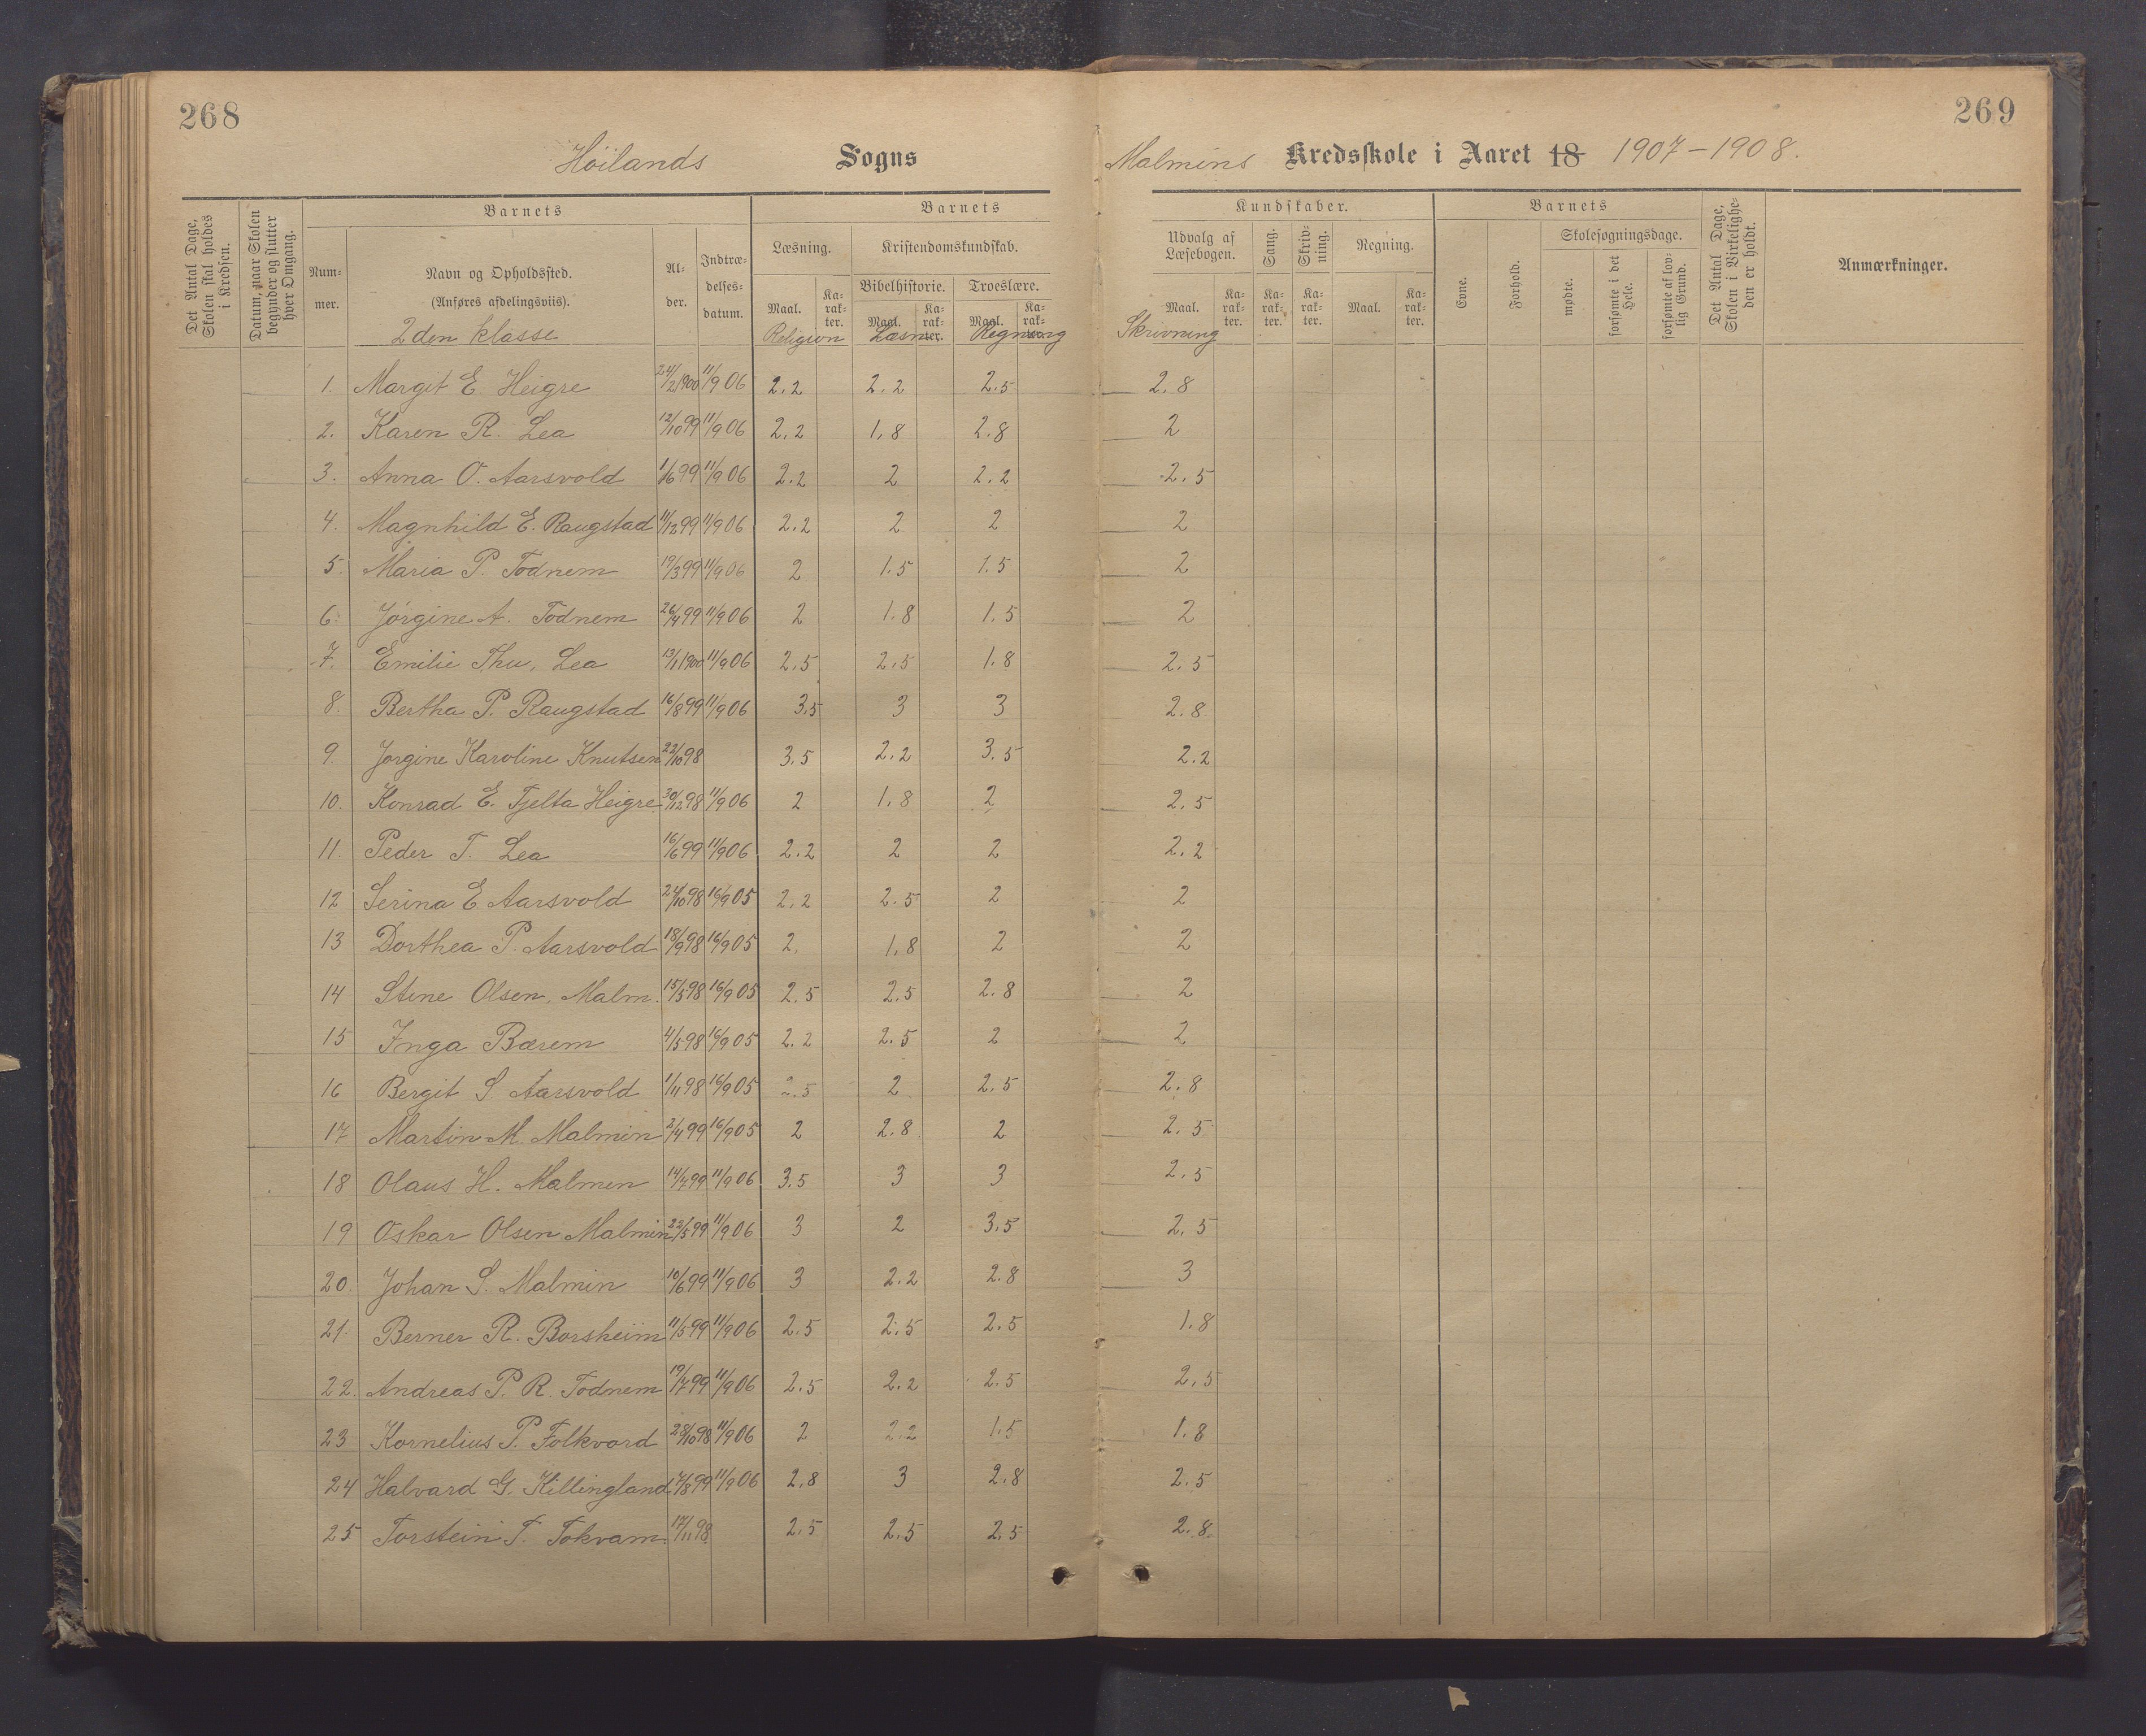 268
269
Höilands Sogns
Malmins Kredsskole i Aaret 18 1907-1908.
Det Antal Dage, Skolen skal holdes i Kredsen.
Datum, naar Skolen begynder og slutter hver Omgang.
Barnets
Nummer.
Navn og Opholdssted.
(Anføres afdelingsviis).
2den klasse
Alder.
Indtrædelsesdatum.
Barnets
Læsning.
Maal.
Karakter.
Kristendomskundskab.
Bibelhistorie.
Maal.
Karakter.
Troeslære.
Maal.
Karakter.
Religion Læsn. Regning
Kundskaber.
Udvalg af Læsebogen.
Maal.
Karakter.
Skrivning
Sang.
Karakter.
Skrivning.
Karakter.
Regning.
Maal.
Karakter.
Barnets
Evne.
Forhold.
Skolesøgningsdage.
mødte.
forsømte i det Hele.
forsømte af lovlig Grund.
Det Antal Dage, Skolen i Virkeligheden er holdt.
Anmærkninger.
1. Margit E. Heigre 24/2 1900 11/9 06 2.2 2.2 2.5 2.8
2. Karen R. Lea 12/10 99 11/9 06 2.2 1.8 2.8 2
3. Anna O. Aarsvold 1/6 99 11/9 06 2.2 2 2.2 2.5
4. Magnhild E. Raugstad 11/12 99 11/9 06 2.2 2 2 2
5. Maria P. Todnem 19/3 99 11/9 06 2 1.5 1.5 2
6. Jørgine A. Todnem 26/4 99 11/9 06 2 1.8 1.5 2
7. Emilie Thu, Lea 13/1 1900 11/9 06 2.5 2.5 1.8 2.5
8. Bertha P. Raugstad 16/8 99 11/9 06 3.5 3 3 2.8
9. Jørgine Karoline Knutsen 22/10 98 3.5 2.2 3.5 2.2
10. Konrad E. Tjelta Heigre 30/12 98 11/9 06 2 1.8 2 2.5
11. Peder T. Lea 16/6 99 11/9 06 2.2 2 2 2.2
12 Serina E Aarsvold 24/10 98 16/9 05 2.2 2.5 2 2
13 Dorthea P. Aarsvold 18/9 98 16/9 05 2. 1.8 2 2
14 Stine Olsen, Malm. 15/5 98 16/9 05 2.5 2.5 2.8 2
15 Inga Bærem 4/5 98 16/9 05 2.2 2.5 2 2
16 Bergit S Aarsvold 1/11 98 16/9 05 2.5 2 2.5 2.8
17 Martin M. Malmin 2/4 99 16/9 05 2 2.8 2 2.5
18 Olaus H. Malmen 14/7 99 11/9 06 3.5 3 3 2.5
19 Oskar Olsen Malmin 22/5 99 11/9 06 3 2 3.5 2.5
20. Johan S. Malmin 10/6 99 11/9 06 3 2.2 2.8 3
21. Berner R. Borsheim 11/5 99 11/9 06 2.5 2.5 2.5 1.8
22. Andreas P. R. Todnem 19/7 99 11/9 06 2.5 2.2 2.5 2.5
23 Kornelius P. Folkvord 28/10 98 11/9 06 2 2.2 1.5 1.8
24 Halvard G. Killingland 7/8 99 11/9 06 2.8 3 2.8 2.5
25 Torstein T. Tokvam 17/11 98 2.5 2.5 2.5 2.8